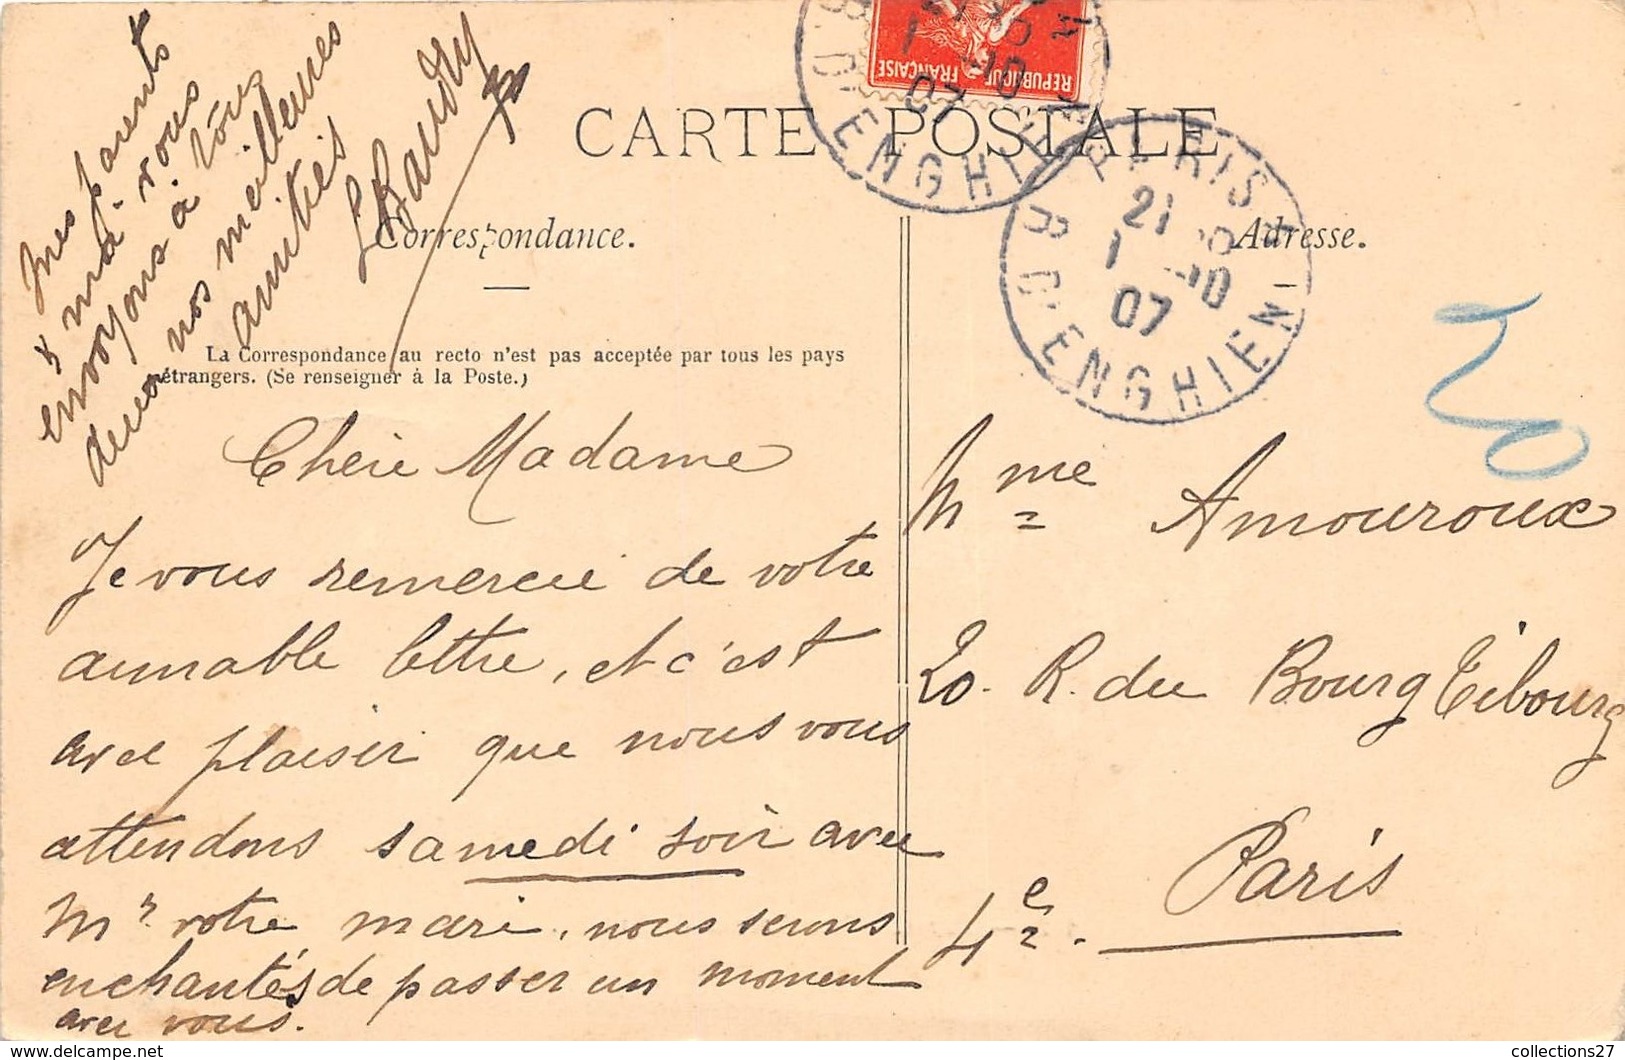 CARTE POSTALE
Correspondance.
Adresse.
La Correspondance au recto n'est pas acceptée par tous les pays
étrangers. (Se renseigner à la Poste.)
RÉPUBLIQUE FRANÇAISE
PARIS
21
1 -10
07
R. D'ENGHIEN
Chère Madame
Je vous remercie de votre
aimable lettre, et c'est
avec plaisir que nous vous
attendons samedi soir avec
Mr votre mari, nous serons
enchantés de passer un moment
avec vous.
Mes parents
& moi vous
envoyons à tous
deux nos meilleures
amitiés
Mme Amouroux
20. R. du Bourg Tibourg
Paris
4e.
collections27